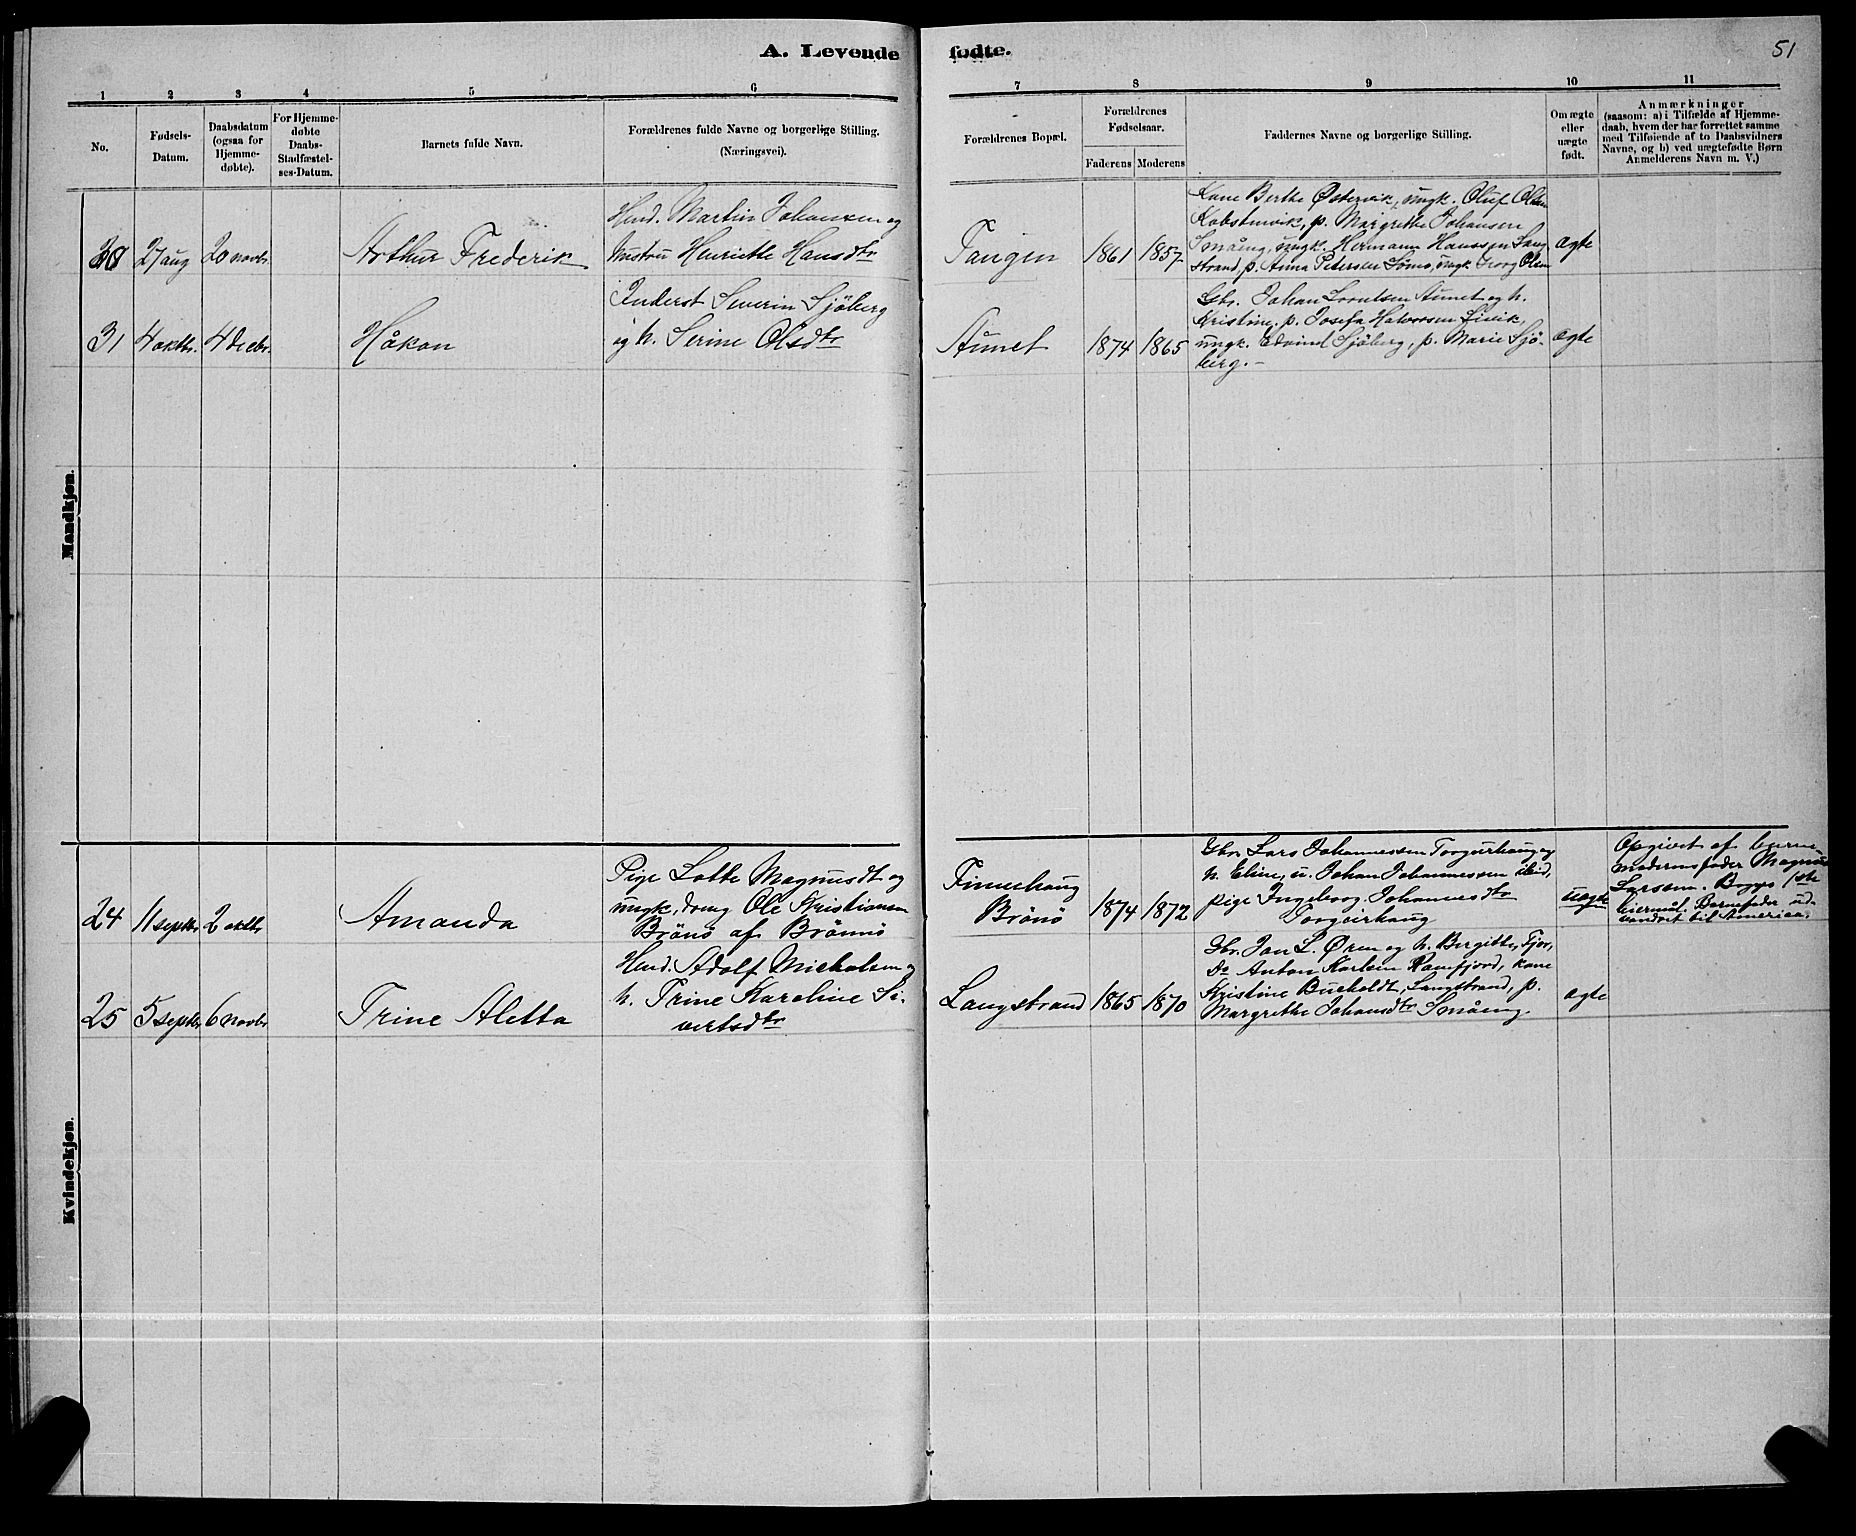 A. Levende fødte.
51
1 2 3 4 5 6 7 8 9 10 11
No.
Fødsels-
Datum.
Daabsdatum
(ogsaa for
Hjemme-
døbte).
For Hjemme-
døbte
Daabs-
Stadfæstel-
ses-Datum.
Barnets fulde Navn.
Forældrenes fulde Navne og borgerlige Stilling.
(Næringsvei).
Forældrenes Bopæl.
Forældrenes
Fødselsaar.
Faderens Moderens
Faddernes Navne og borgerlige Stilling.
Om ægte
eller
uægte
født.
Anmærkninger
(saasom: a) i Tilfælde af Hjemme-
daab, hvem der har forrettet samme
med Tilføiende af to Daabsvidners
Navne, og b) ved uægtefødte Børn
Anmelderens Navn m. V.)
Mandkjøn.
30 27 aug 20 novbr. Arthur Frederik
Hmd. Martin Johansen og
hustru Henriette Hansdtr
Tangen 1861 1857
Kone Berthe Østervik, ungk. Oluf Olsen
Kobstenvik, p. Margrethe Johansen
Småeng, ungk. Hermann Hanssen Lang
strand, p. Anna Petersen Sømo, ungk. Georg Olsen
ægte
31 4 oktbr. 4 decbr. Håkon
Inderst Severin Sjöberg
og h. Serine Olsdtr
Aunet 1874 1865
Gbr. Johan Lorntsen Aunet og h.
Kristine, p. Josefa Halvorsen Livik,
ungk. Edvind Sjöberg, p. Marie Sjö-
berg.-
ægte
Kvindekjøn.
24 11 septbr 2 oktbr Amanda
Pige Lotte Magnusdt og
ungk., dreng Ole Kristiansen
Brönö af Brönnö
Finnehaug
Brönö
1874 1872
Gbr. Lars Johannessen Torgeirhaug og
h. Eline, u. Johan Johannessen ibid,
pige Ingeborg Johannesdtr
Torgeirhaug
uægte
Opgivet af barne-
moderens fader Magnus
Larssen. Begges 1ste
leiermål. Barnefader ud-
vandret til Amerika.
25 5 septbr 6 novbr Trine Aletta
Hmd. Adolf Nicholsen og
h. Trine Karoline Si-
vertsdtr
Langstrand 1865 1870
Gbr. Jan L. Ören og h. Bergitte, Fjor,
Do Anton Karlsen Ramfjord, kone
Kristine Bucholdt, Langstrand, p.
Margrethe Johansdtr Småeng.
ægte